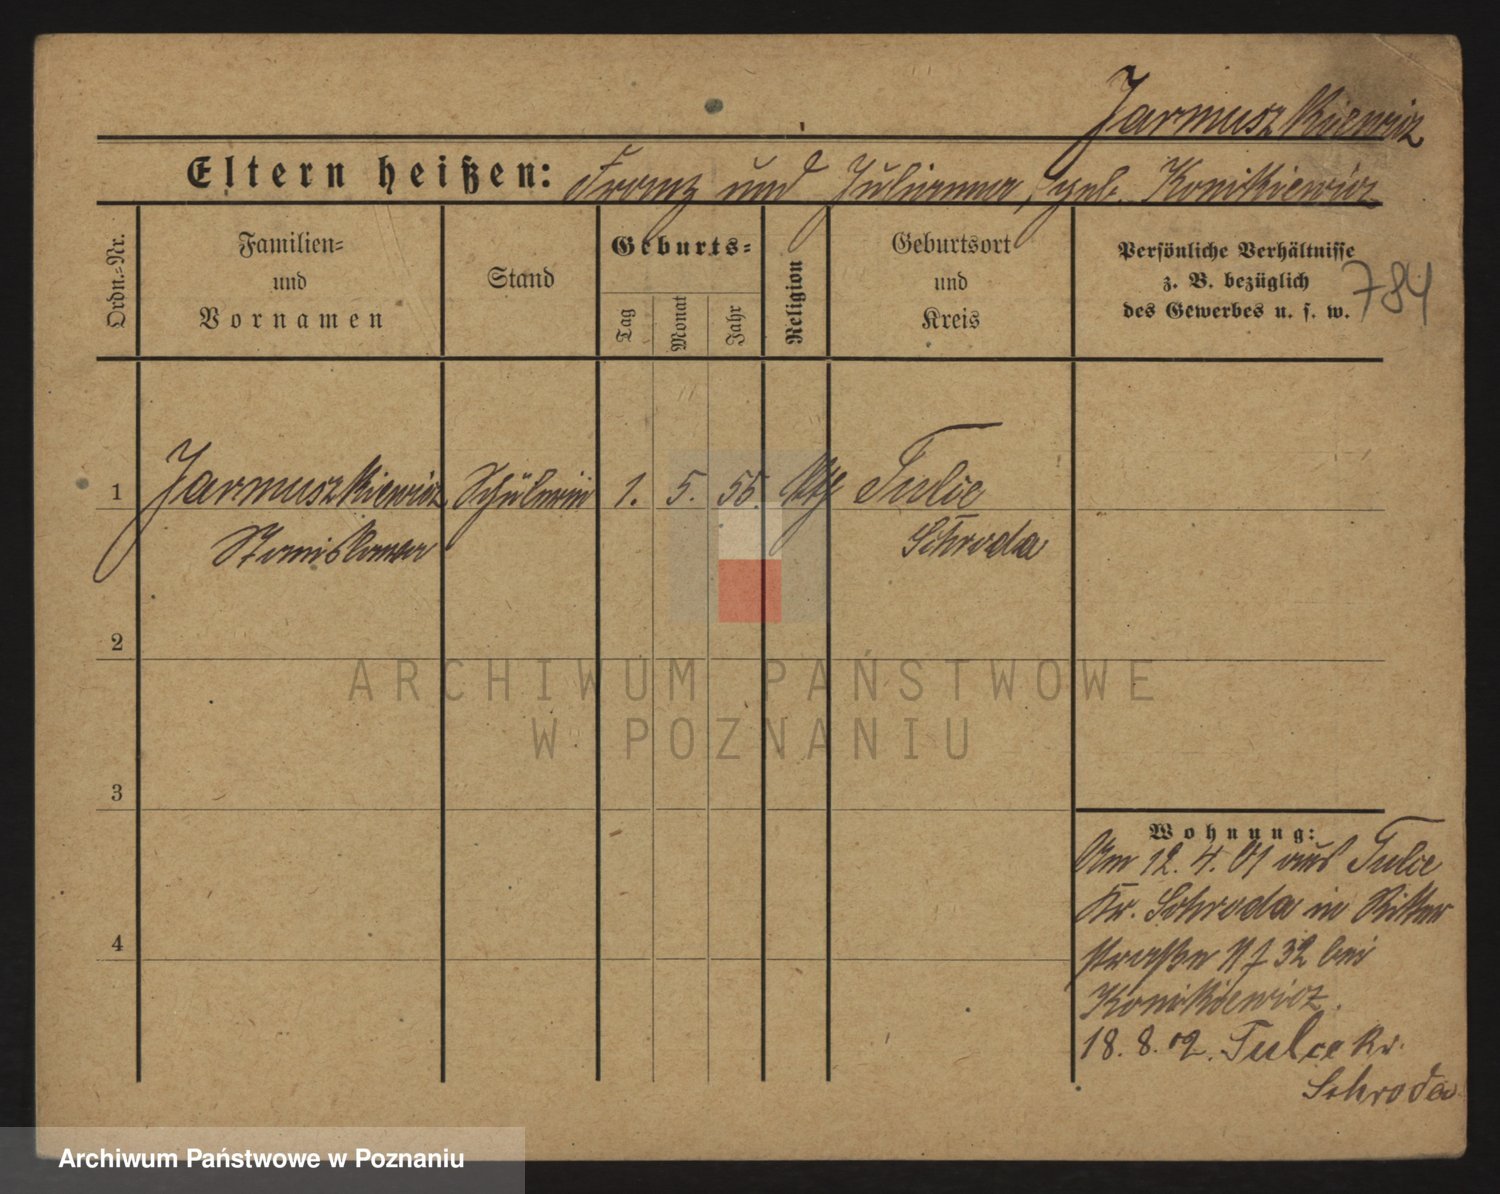 Jarmuszkiewicz
Eltern heißen: Franz und Julianna, geb. Konitkiewicz
Ordn.-Nr.
Familien-
und
Vornamen
Stand
Geburts-
Tag
Monat
Jahr
Religion
Geburtsort
und
Kreis
Persönliche Verhältnisse
z. B. bezüglich
des Gewerbes u. s. w.
784
1 Jarmuszkiewicz Schülerin 1. 5. Tulce
Stanislawa Schroda
2
ARCHIWUM PAŃSTWOWE
W POZNANIU
3
4
Wohnung:
Am 12. 4. 01 aus Tulce
Kr. Schroda in Ritter
straße 32 bei
Konitkiewicz.
18. 8. 02. Tulce Kr.
Schroda
Archiwum Państwowe w Poznaniu